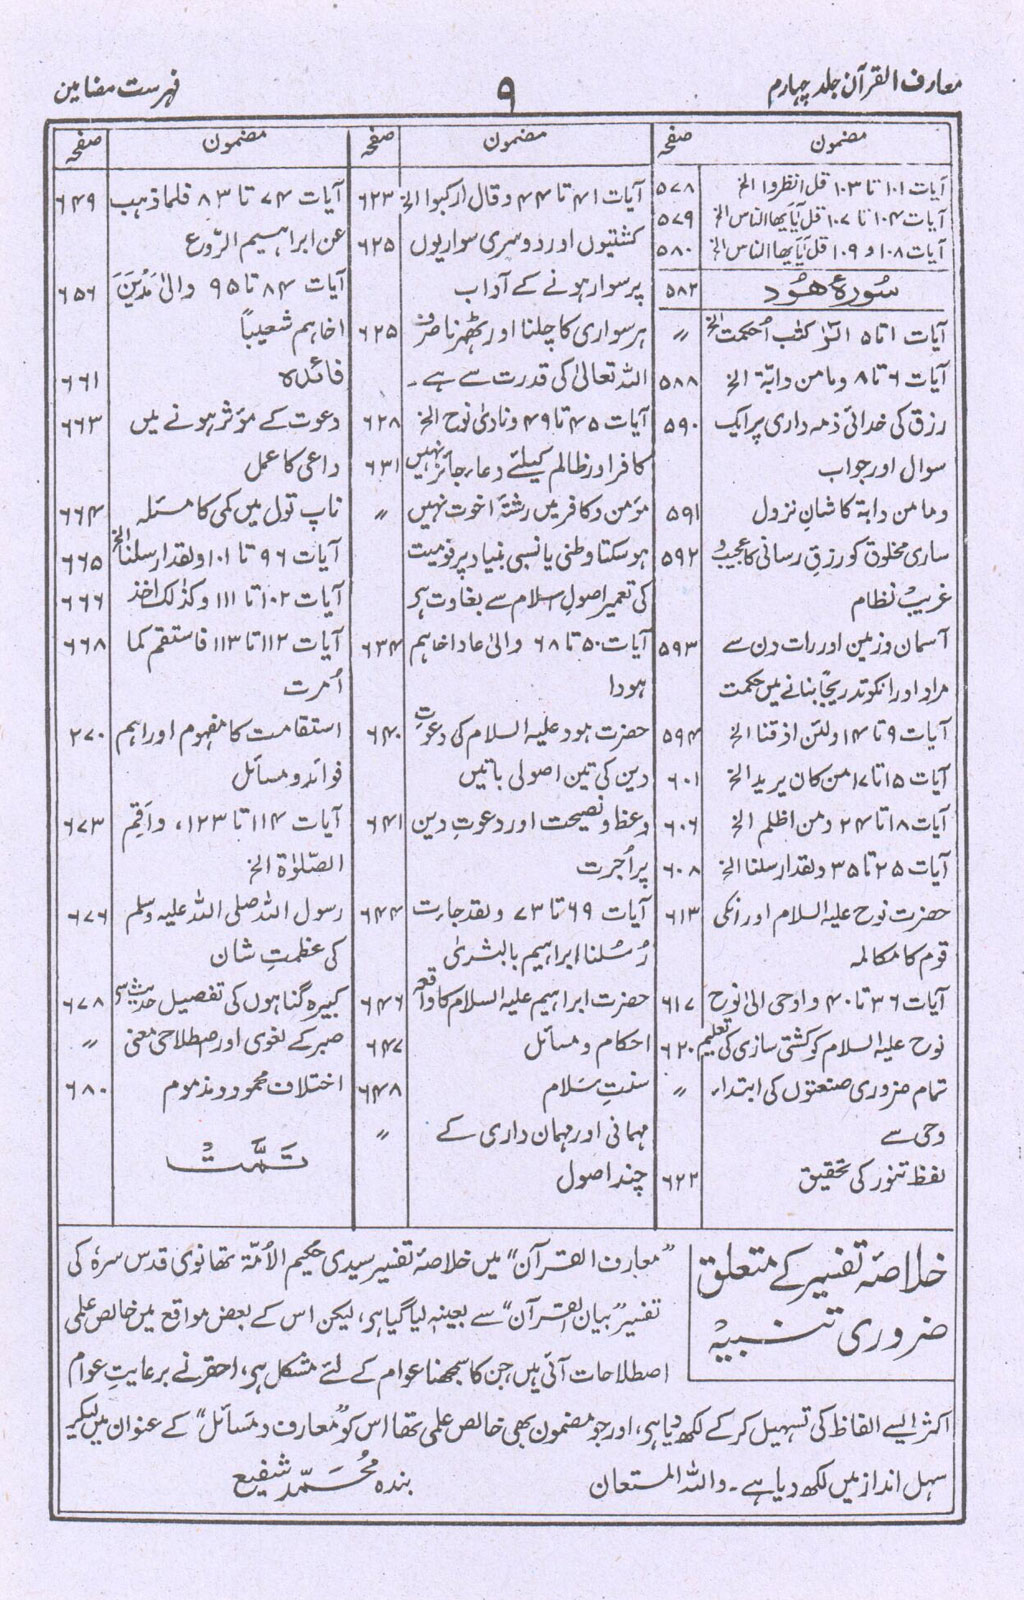 معارف القرآن جلد چہارم
۹
فہرست مضامین
مضمون صفحہ
آیات ۱۰۱ تا ۱۰۳ قل انظروا الخ ۵۷۸
آیات ۱۰۴ تا ۱۰۷ قل یٰٓایھا الناس الخ ۵۷۹
آیات ۱۰۸ و ۱۰۹ قل یٰٓایھا الناس الخ ۵۸۰
سُورۂ ھُود ۵۸۲
آیات ۱ تا ۵ الٓرٰ کتٰب اُحکمت الخ 〃
آیات ۶ تا ۸ وما من دابۃ الخ ۵۸۸
رزق کی خدائی ذمہ داری پر ایک ۵۹۰
سوال اور جواب
وما من دابۃ کا شانِ نزول ۵۹۱
ساری مخلوق کو رزق رسانی کا عجیب و ۵۹۲
غریب نظام
آسمان و زمین اور رات دن سے ۵۹۳
مراد اور انکو تدریجًا بنانے میں حکمت
آیات ۹ تا ۱۴ ولئن اذقنا الخ ۵۹۴
آیات ۱۵ تا ۱۷ من کان یرید الخ ۶۰۱
آیات ۱۸ تا ۲۴ ومن اظلم الخ ۶۰۶
آیات ۲۵ تا ۳۵ ولقد ارسلنا الخ ۶۰۸
حضرت نوح علیہ السلام اور انکی ۶۱۳
قوم کا مکالمہ
آیات ۳۶ تا ۴۰ و اوحی الیٰ نوح ۶۱۷
نوح علیہ السلام کو کشتی سازی کی تعلیم ۶۲۰
تمام ضروری صنعتوں کی ابتداء 〃
وحی سے
لفظ تنور کی تحقیق ۶۲۲
مضمون صفحہ
آیات ۴۱ تا ۴۴ وقال ارکبوا الخ ۶۲۳
کشتیوں اور دوسری سواریوں ۶۲۵
پر سوار ہونے کے آداب
ہر سواری کا چلنا اور ٹھہرنا صرف ۶۲۵
اللہ تعالیٰ کی قدرت سے ہے۔
آیات ۴۵ تا ۴۹ ونادیٰ نوح الخ ۶۲۸
کافر اور ظالم کیلئے دعاء جائز نہیں ۶۳۱
مؤمن و کافر میں رشتۂ اخوت نہیں 〃
ہو سکتا وطنی یا نسبی بنیاد پر قومیت
کی تعمیر اصولِ اسلام سے بغاوت ہے
آیات ۵۰ تا ۶۸ والیٰ عاد اخاہم ۶۳۴
ہودا
حضرت ہود علیہ السلام کی دعوتِ ۶۴۰
دین کی تین اصولی باتیں
وعظ و نصیحت اور دعوتِ دین ۶۴۱
پر اُجرت
آیات ۶۹ تا ۷۳ ولقد جاءت ۶۴۴
رُسُلنا ابراہیم بالبشریٰ
حضرت ابراہیم علیہ السلام کا واقعہ ۶۴۶
احکام و مسائل ۶۴۷
سنتِ سَلام ۶۴۸
مہمانی اور مہمان داری کے 〃
چند اصول
مضمون صفحہ
آیات ۷۴ تا ۸۳ فلما ذھب ۶۴۹
عن ابراہیم الرّوع
آیات ۸۴ تا ۹۵ والیٰ مَدْیَنَ ۶۵۶
اخاہم شعیبًا
فائدہ ۶۶۱
دعوت کے مؤثر ہونے میں ۶۶۳
داعی کا عمل
ناپ تول میں کمی کا مسئلہ ۶۶۴
آیات ۹۶ تا ۱۰۱ ولقد ارسلنا الخ ۶۶۵
آیات ۱۰۲ تا ۱۱۱ وکذٰلک اخذ ۶۶۶
آیات ۱۱۲ تا ۱۱۳ فاستقم کما ۶۶۸
اُمرت
استقامت کا مفہوم اور اہم ۲۷۰
فوائد و مسائل
آیات ۱۱۴ تا ۱۲۳، واَقِم ۶۷۳
الصّلوٰۃ الخ
رسول اللہ صلی اللہ علیہ وسلم ۶۷۶
کی عظمتِ شان
کبیرہ گناہوں کی تفصیل حدیث سے ۶۷۸
صبر کے لغوی اور اصطلاحی معنی 〃
اختلاف محمود و مذموم ۶۸۰
تَمَّت
خلاصۂ تفسیر کے متعلق
ضروری تنبیہ
”معارف القرآن“ میں خلاصۂ تفسیر سیدی حکیم الاُمّۃ تھانوی قدس سرہٗ کی
تفسیر ”بیان القرآن“ سے بعینہٖ لیا گیا ہے، لیکن اس کے بعض مواقع میں خالص علمی
اصطلاحات آئی ہیں جن کا سمجھنا عوام کے لئے مشکل ہے، احقر نے برعایتِ عوام
اکثر ایسے الفاظ کی تسہیل کر کے لکھ دیا ہے، اور جو مضمون ہی خالص علمی تھا اس کو ”معارف و مسائل“ کے عنوان میں لیکر
سہل انداز میں لکھ دیا ہے۔ واللہ المستعان بندہ محمّد شفیع